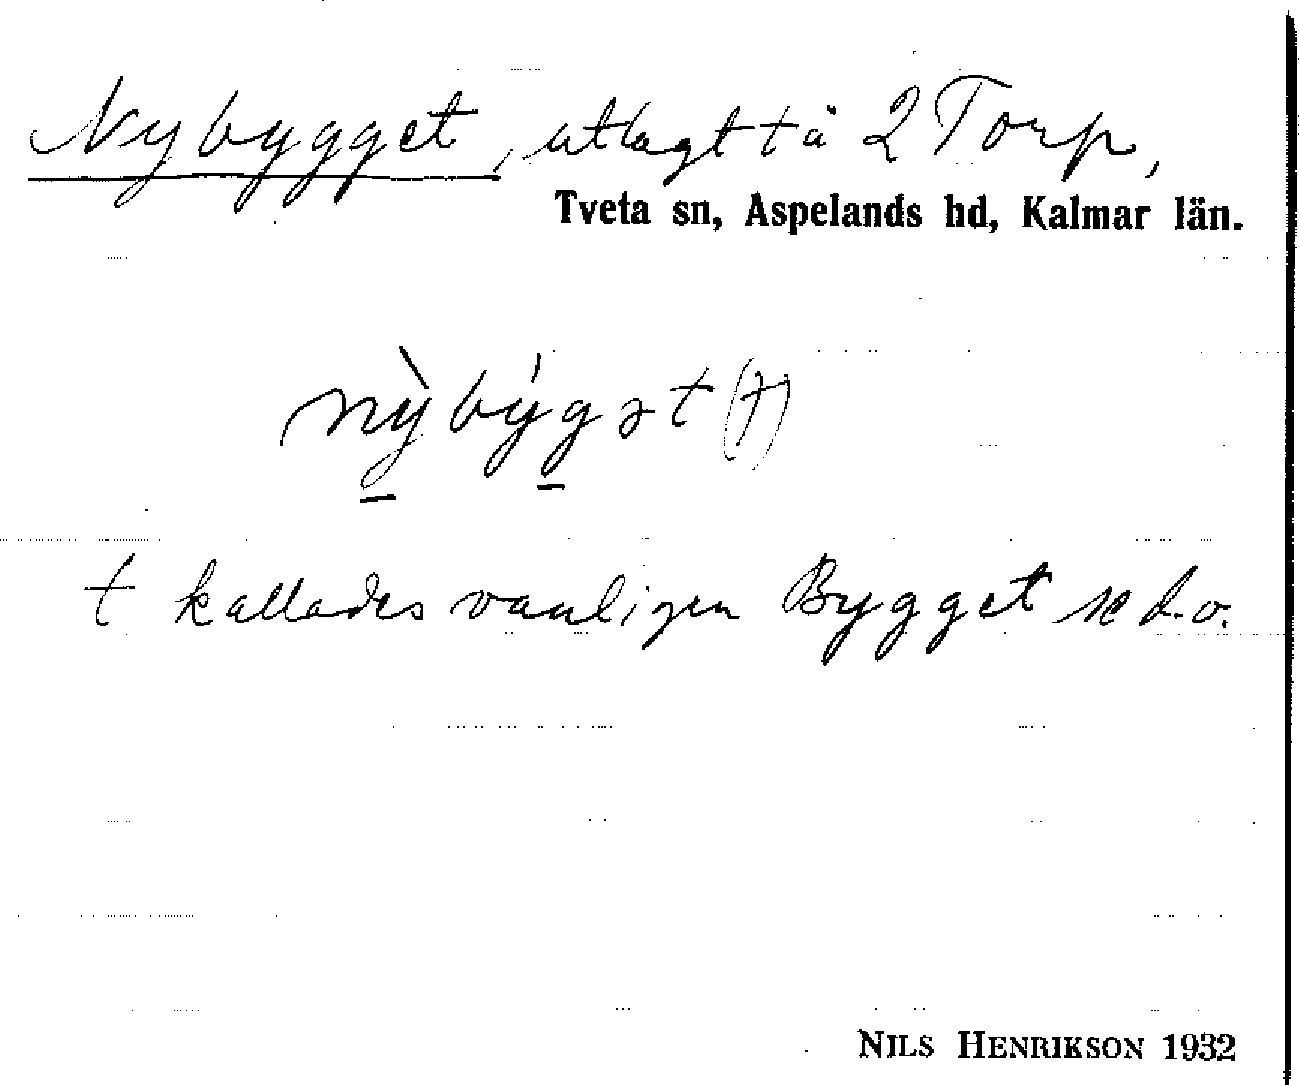 Nybygget, utlagt t å 2 Torp,
Tveta sn, Aspelands hd, Kalmar län.
nỳbýgət (t)
t kallades vanligen Bygget se d.o.
NILS HENRIKSON 1932